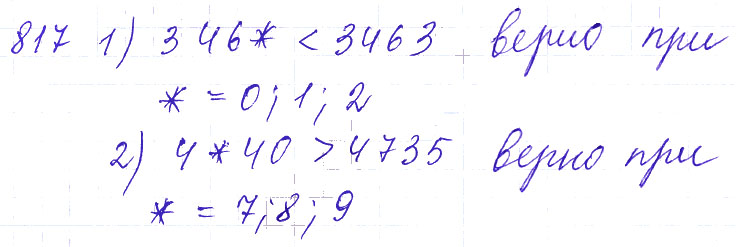 817 1) 346* < 3463 верно при
* = 0; 1; 2
2) 4*40 > 4735 верно при
* = 7; 8; 9